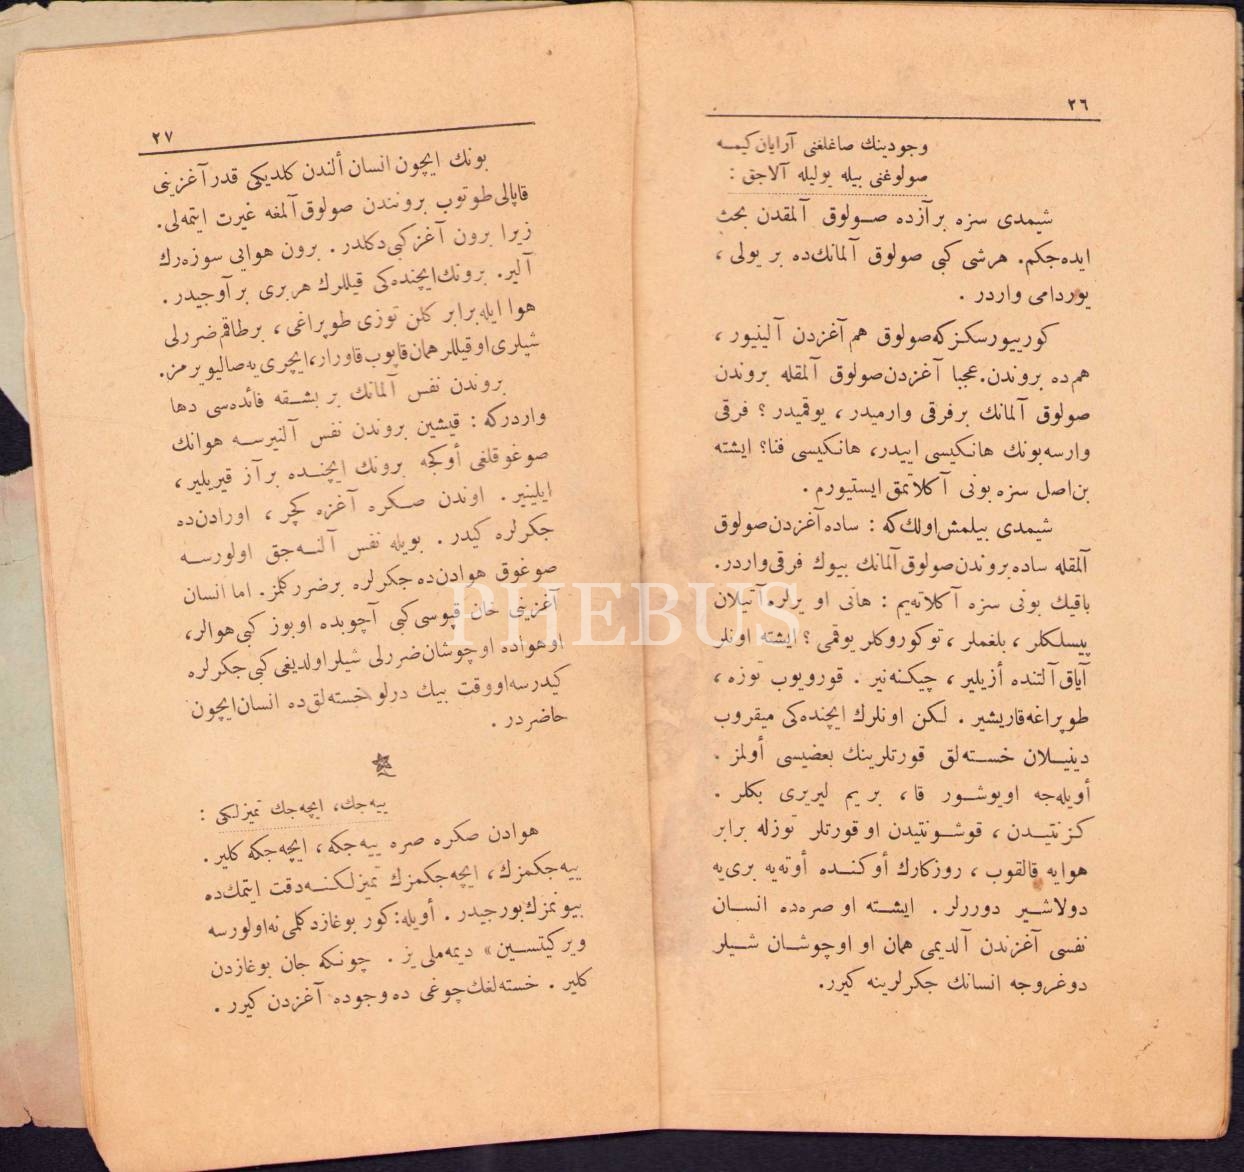 ٢٦
وجودينك صاغلغنى آرايان كيمسه
صولوغنى بيله يوليله آلاجق :
شيمدى سزه برآزده صولوق آلمقدن بحث
ايده‌جكم. هرشى كبى صولوق آلمانك‌ده بر يولى ،
يوردامى واردر .
كورييورسكزكه صولوق هم آغزدن آلينيور ،
هم‌ده بروندن. عجبا آغزدن صولوق آلمقله بروندن
صولوق آلمانك برفرقى وارميدر ، يوقميدر ؟ فرقى
وارسه بونك هانكيسى اييدر، هانكيسى فنا؟ ايشته
بن اصل سزه بونى آكلاتمق ايستيورم .
شيمدى بيلمش اولك كه : ساده آغزدن صولوق
آلمقله ساده بروندن صولوق آلمانك بيوك فرقى واردر.
باقيك بونى سزه آكلاته‌يم : هانى او يرلره آتيلان
پيسلكلر ، بلغملر ، توكوروكلر يوقمى ؟ ايشته اونلر
آياق آلتنده أزيلير ، چيكنه‌نير . قورويوب توزه ،
طوپراغه قاريشير . لكن اونلرك ايچنده‌كى ميقروب
دينيلان خسته‌لق قورتلرينك بعضيسى أولمز .
أويله‌جه اويوشور قا، بريم ليريرى بكلر .
كزنتيدن ، قوشونتيدن او قورتلر توزله برابر
هوايه قالقوب ، روزكارك أوكنده أوته‌يه برى‌يه
دولاشير دوررلر . ايشته او صره‌ده انسان
نفسى آغزندن آلديمى همان او اوچوشان شيلر
دوغروجه انسانك جكرلرينه كيرر.
٢٧
بونك ايچون انسان ألندن كلديكى قدر آغزينى
قاپالى طوتوب بروننندن صولوق آلمغه غيرت ايتمه‌لى.
زيرا برون آغز كبى دكلدر . برون هوايى سوزه‌رك
آلير. برونك ايچنده‌كى قيللرك هربرى برآوجيدر .
هوا ايله برابر كلن توزى طوپراغى ، برطاقم ضررلى
شيلرى او قيللر همان قاپوب قاورار، ايچرى‌يه صاليويرمز.
بروندن نفس آلمانك بر بشقه فائده‌سى دها
واردركه : قيشين بروندن نفس آلنيرسه هوانك
صوغوقلغى أوكجه برونك ايچنده برآز قيريلير ،
ايلينير . اوندن صكره آغزه كچر ، اورادن‌ده
جكرلره كيدر . بويله نفس آلنه‌جق اولورسه
صوغوق هوادن‌ده جكرلره برضرر كلمز. اما انسان
آغزينى خان قپوسى كبى آچوبده اوبوز كبى هوالر،
او هواده اوچوشان ضررلى شيلر اولديغى كبى جكرلره
كيدرسه او وقت بيك درلو خسته‌لق‌ده انسان ايچون
حاضردر .
ييه‌جك، ايچه‌جك تميزلكى :
هوادن صكره صره ييه‌جكه ، ايچه‌جكه كلير .
ييه‌جكمزك ، ايچه‌جكمزك تميزلكنه دقت ايتمك‌ده
بيونمزك بورجيدر . أويله: كور بوغازدكلمى نه اولورسه
ويركيتسين» ديمه‌ملى‌يز . چونكه جان بوغازدن
كلير . خسته‌لغك چوغى ده وجوده آغزدن كيرر .
PHEBUS